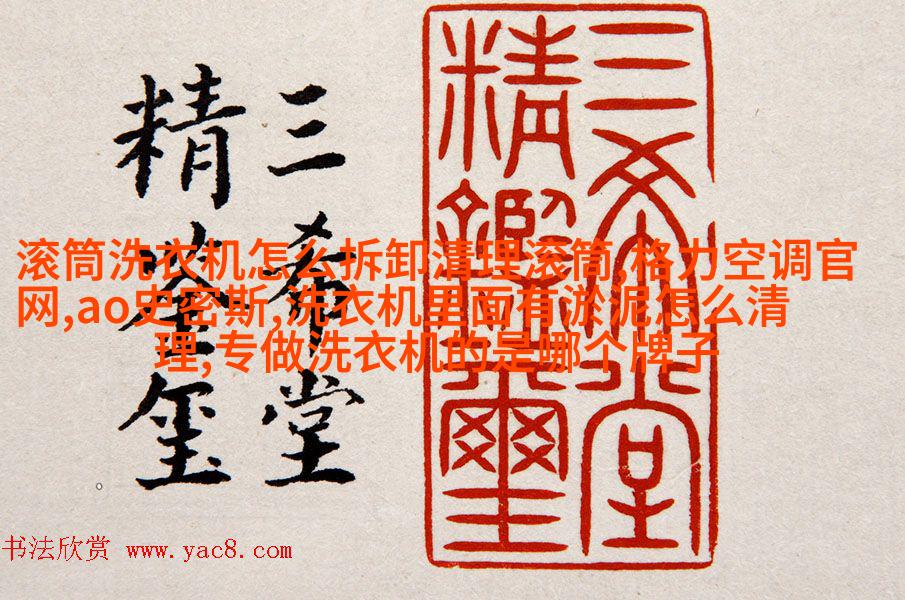 三希堂
精鉴玺
三希堂
精鑑璽
滚筒洗衣机怎么拆卸清理滚筒,格力空调官
网,ao史密斯,洗衣机里面有淤泥怎么清
理,专做洗衣机的是哪个牌子
书法欣赏 www.yac8.com